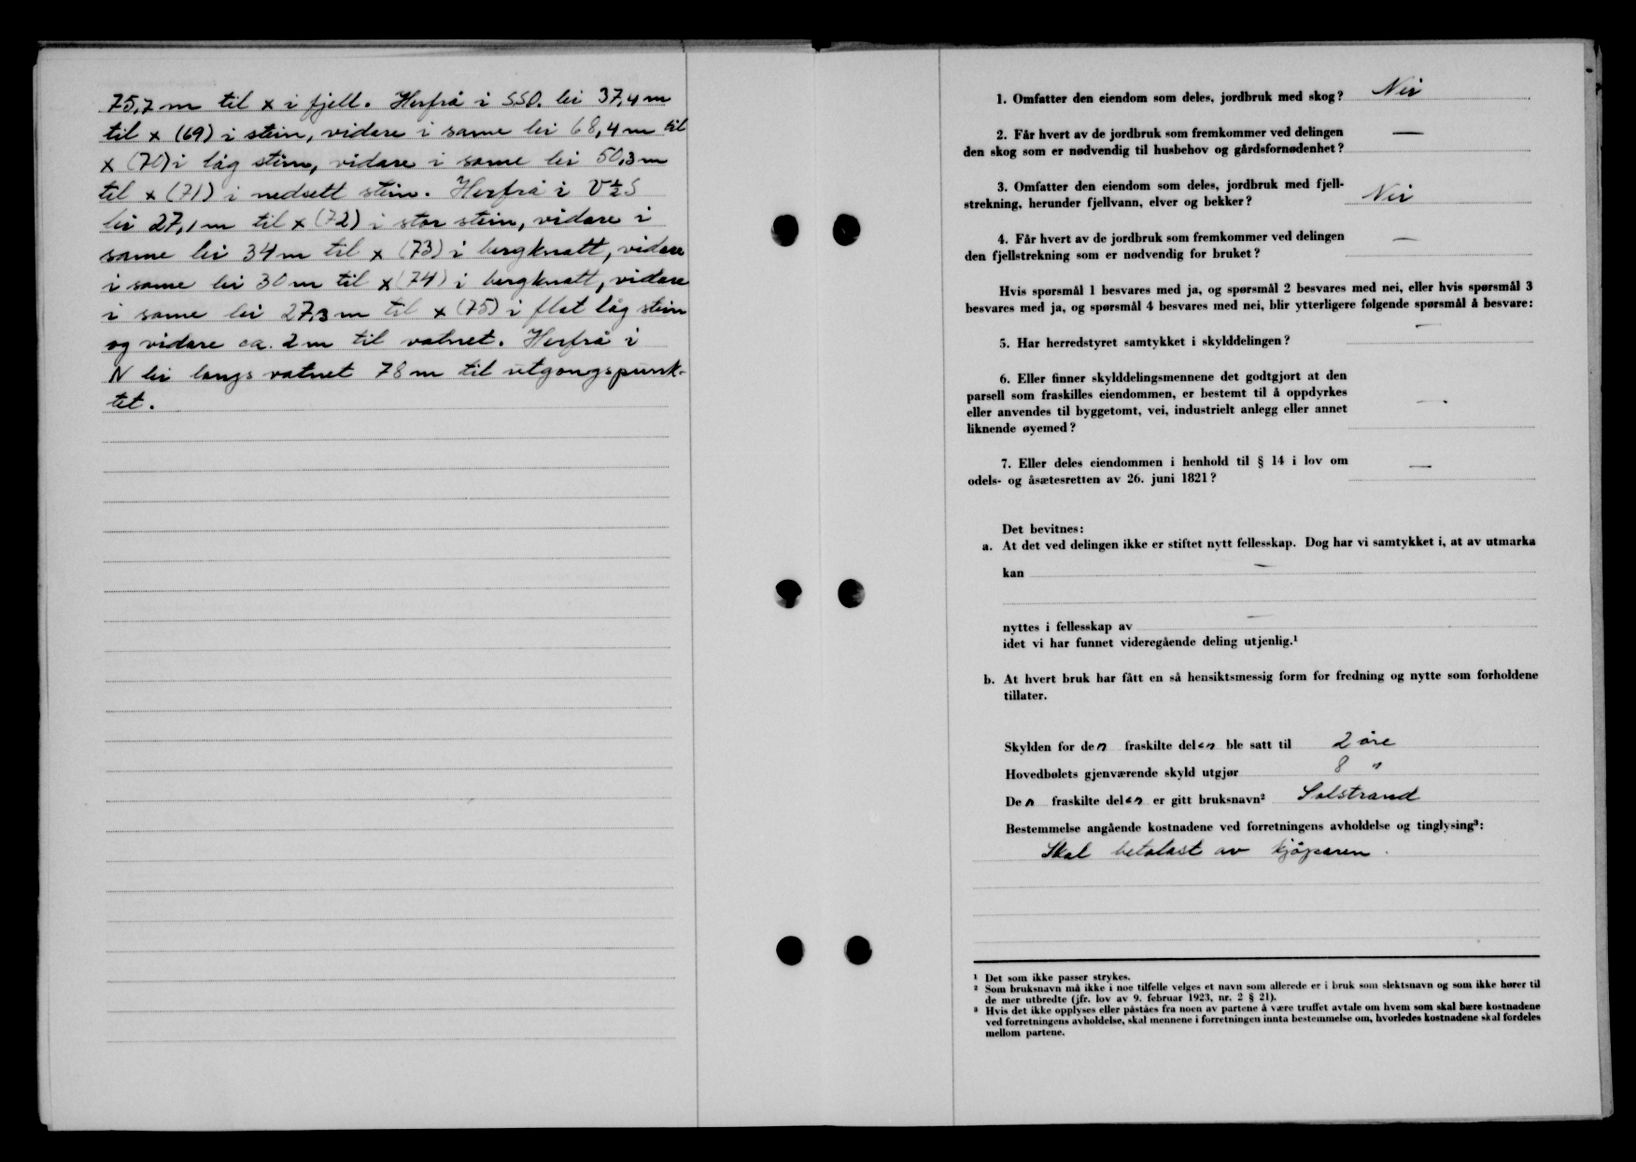 75,7 m til x i fjell. Herfrå i SSO. lei 37,4 m
til x (69) i stein, vidare i same lei 68,4 m til
x (70) i låg stein, vidare i same lei 50,3 m
til x (71) i nedsett stein. Herfrå i V½S
lei 27,1 m til x (72) i stor stein, vidare i
same lei 34 m til x (73) i bergknatt, vidare
i same lei 30 m til x (74) i bergknatt, vidare
i same lei 27,3 m til x (75) i flat låg stein
og vidare ca. 2 m til vatnet. Herfrå i
N lei langs vatnet 78 m til utgangspunk-
tet.
1. Omfatter den eiendom som deles, jordbruk med skog? Nei
2. Får hvert av de jordbruk som fremkommer ved delingen —
den skog som er nødvendig til husbehov og gårdsfornødenhet?
3. Omfatter den eiendom som deles, jordbruk med fjell-
strekning, herunder fjellvann, elver og bekker? Nei
4. Får hvert av de jordbruk som fremkommer ved delingen —
den fjellstrekning som er nødvendig for bruket?
Hvis spørsmål 1 besvares med ja, og spørsmål 2 besvares med nei, eller hvis spørsmål 3
besvares med ja, og spørsmål 4 besvares med nei, blir ytterligere følgende spørsmål å besvare:
5. Har herredstyret samtykket i skylddelingen? —
6. Eller finner skylddelingsmennene det godtgjort at den
parsell som fraskilles eiendommen, er bestemt til å oppdyrkes
eller anvendes til byggetomt, vei, industrielt anlegg eller annet —
liknende øyemed?
7. Eller deles eiendommen i henhold til § 14 i lov om —
odels- og åsætesretten av 26. juni 1821?
Det bevitnes:
a. At det ved delingen ikke er stiftet nytt fellesskap. Dog har vi samtykket i, at av utmarka
kan —
nyttes i fellesskap av —
idet vi har funnet videregående deling utjenlig.¹
b. At hvert bruk har fått en så hensiktsmessig form for fredning og nytte som forholdene
tillater.
Skylden for den fraskilte delen ble satt til 2 øre
Hovedbølets gjenværende skyld utgjør 8 "
Den fraskilte delen er gitt bruksnavn² Solstrand
Bestemmelse angående kostnadene ved forretningens avholdelse og tinglysing³:
Skal betalast av kjøparen.
¹ Det som ikke passer strykes.
² Som bruksnavn må ikke i noe tilfelle velges et navn som allerede er i bruk som slektsnavn og som ikke hører til
de mer utbredte (jfr. lov av 9. februar 1923, nr. 2 § 21).
³ Hvis det ikke opplyses eller påståes fra noen av partene å være truffet avtale om hvem som skal bære kostnadene
ved forretningens avholdelse, skal mennene i forretningen innta bestemmelse om, hvorledes kostnadene skal fordeles
mellom partene.